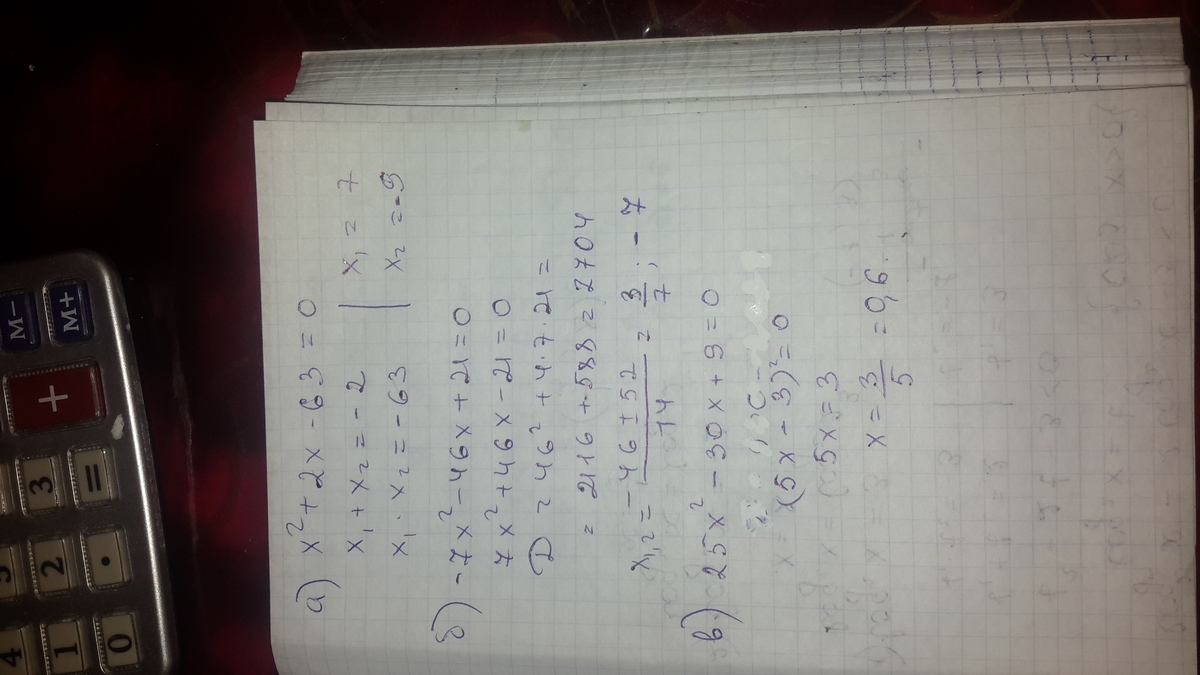 а) x² + 2x - 63 = 0
x₁ + x₂ = - 2 | x₁ = 7
x₁ · x₂ = - 63 | x₂ = -9
б) -7x² - 46x + 21 = 0
7x² + 46x - 21 = 0
D = 46² + 4·7·21 =
= 2116 + 588 = 2704
x₁,₂ = (-46 ± 52)/14 = 3/7 ; - 7
в) 25x² - 30x + 9 = 0
(5x - 3)² = 0
5x = 3
x = 3/5 = 0,6.
M-
M+
+
3
=
2
·
4
1
0